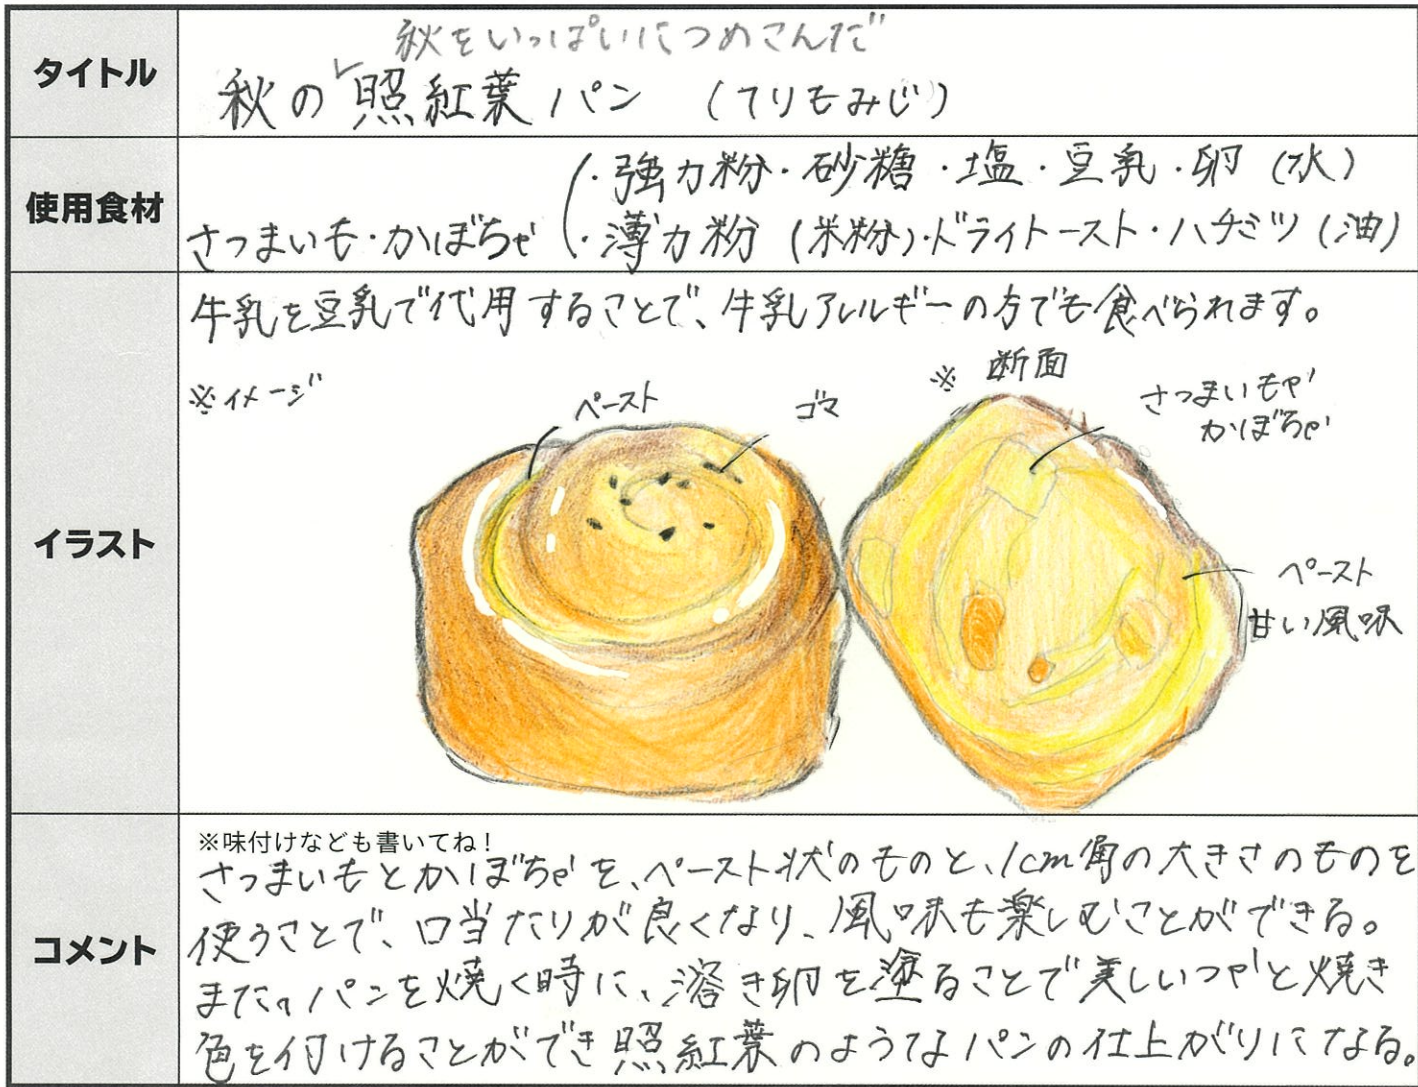 タイトル
秋をいっぱいにつめこんだ
秋の照紅葉パン (てりもみじ)
使用食材
さつまいも・かぼちゃ
・強力粉・砂糖・塩・豆乳・卵 (水)
・薄力粉 (米粉)・ドライトースト・ハチミツ (油)
イラスト
牛乳を豆乳で代用することで、牛乳アレルギーの方でも食べられます。
※イメージ
ペースト
ゴマ
※ 断面
さつまいもや
かぼちゃ
ペースト
甘い風味
コメント
※味付けなども書いてね!
さつまいもとかぼちゃを、ペースト状のものと、1cm角の大きさのものを
使うことで、口当たりが良くなり、風味も楽しむことができる。
また、パンを焼く時に、溶き卵を塗ることで美しいつやと焼き
色を付けることができ照紅葉のようなパンの仕上がりになる。